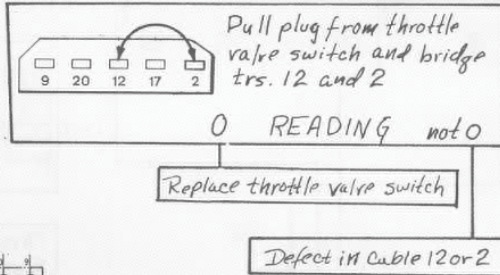 Pull plug from throttle
valve switch and bridge
trs. 12 and 2
9 20 12 17 2
0 READING not 0
Replace throttle valve switch
Defect in Cable 12 or 2
9